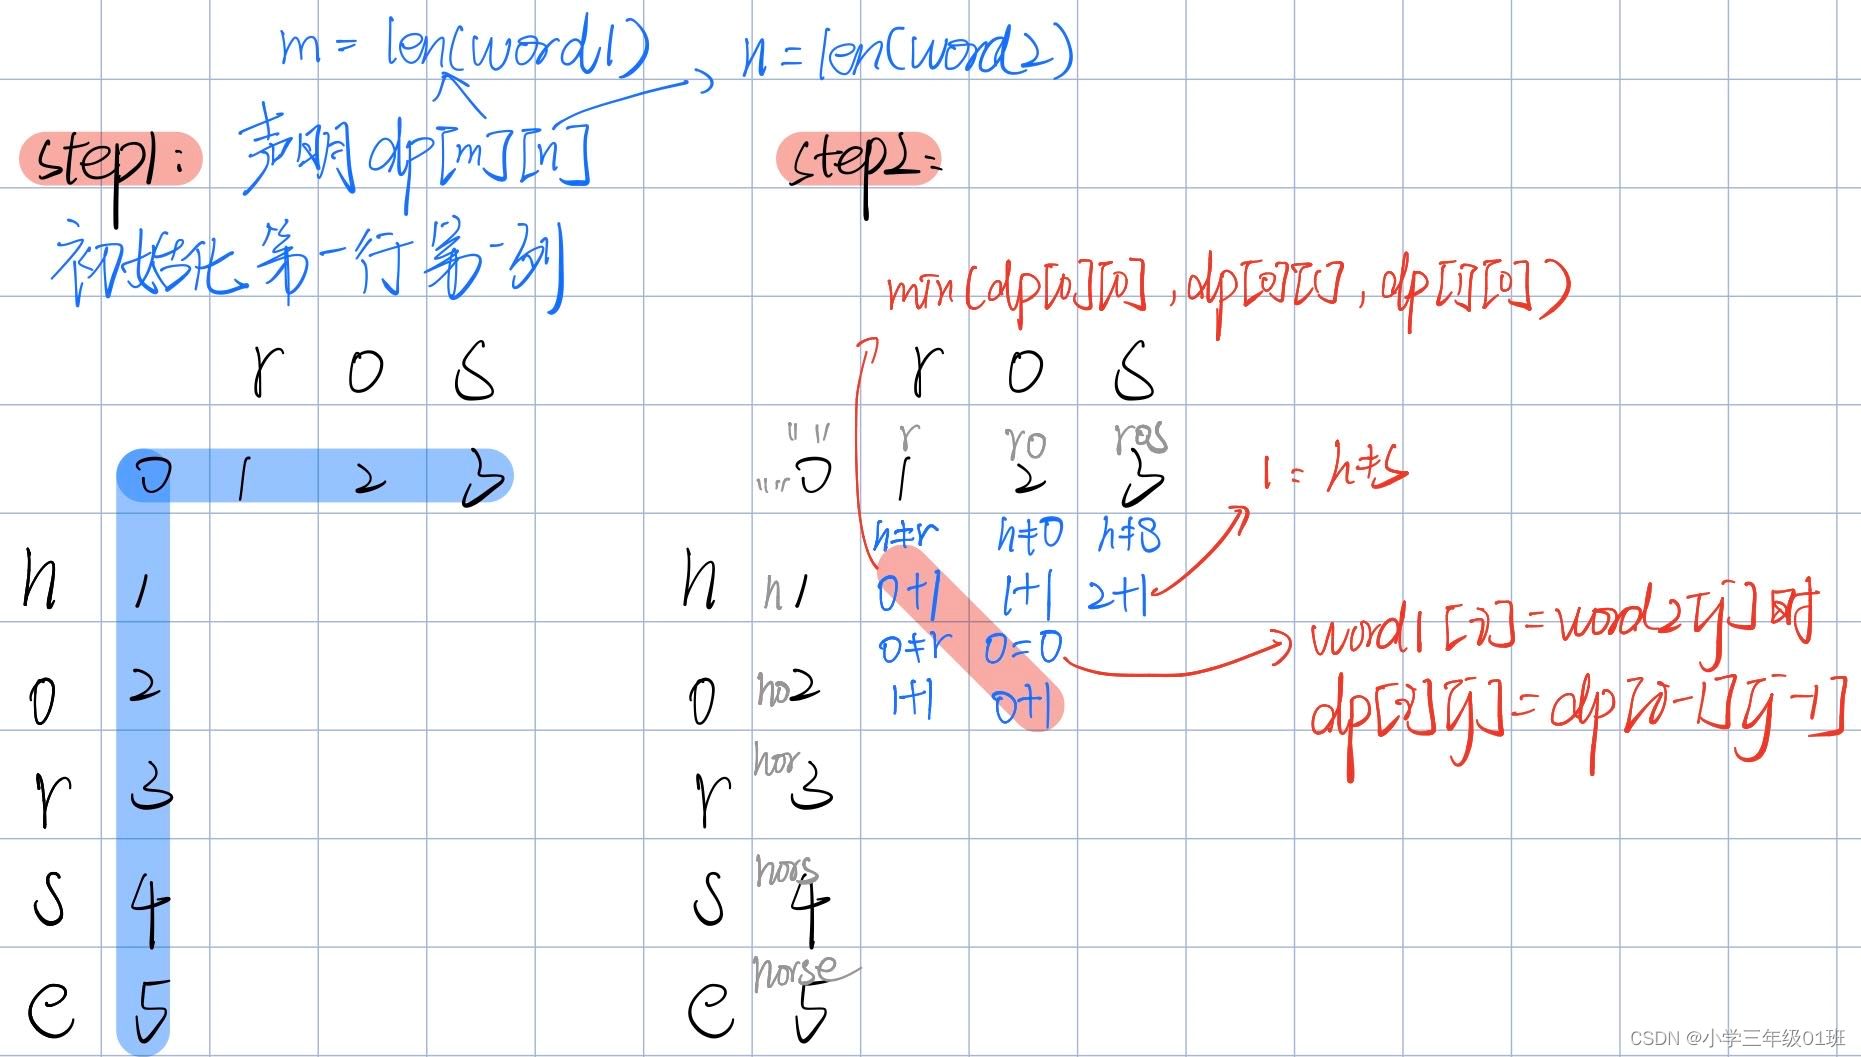 m = len(word1) n = len(word2)
step1: 声明 dp[m][n]
初始化 第一行 第一列
r o s
0 1 2 3
h 1
o 2
r 3
s 4
e 5
step2:
min(dp[0][0], dp[0][1], dp[1][0])
r o s
"" r ro ros
"" 0 1 2 3
1: h≠s
h≠r h≠o h≠s
h h 1 0+1 1+1 2+1
o≠r o=o
o ho 2 1+1 0+1
word1[i]=word2[j]时
dp[i][j]=dp[i-1][j-1]
r hor 3
s hors 4
e horse 5
CSDN @小学三年级01班